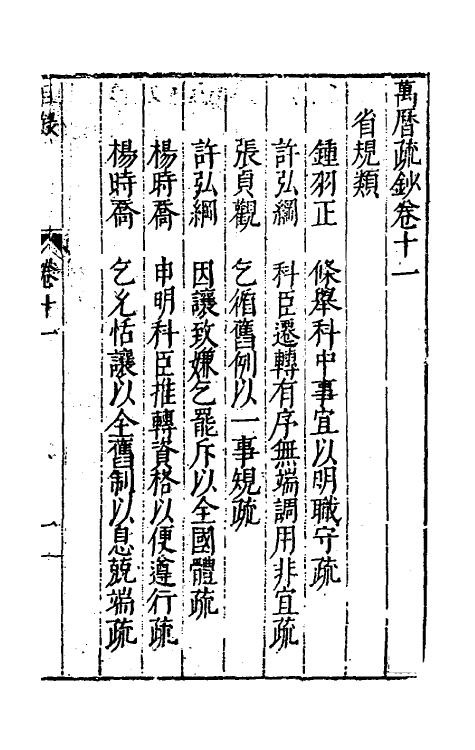 萬曆疏鈔卷十一
省規類
鍾羽正 條舉科中事宜以明職守疏
許弘綱 科臣遷轉有序無端調用非宜疏
張貞觀 乞循舊例以一事規疏
許弘綱 因讓致嫌乞罷斥以全國體疏
楊時喬 申明科臣推轉資格以便遵行疏
楊時喬 乞允恬讓以全舊制以息兢端疏
目錄 卷十一 一